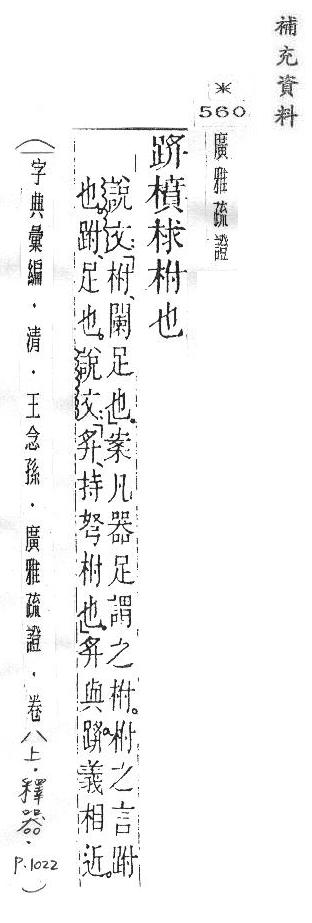 補充資料
※
560
廣雅疏證
樻梂柎也
說文：「柎、闌足也。」案凡器足謂之柎。柎之言跗
也。跗、足也。說文：「、持弩柎也。」與義相近。
（字典彙編．清．王念孫．廣雅疏證．卷八上．釋器．P.1022）